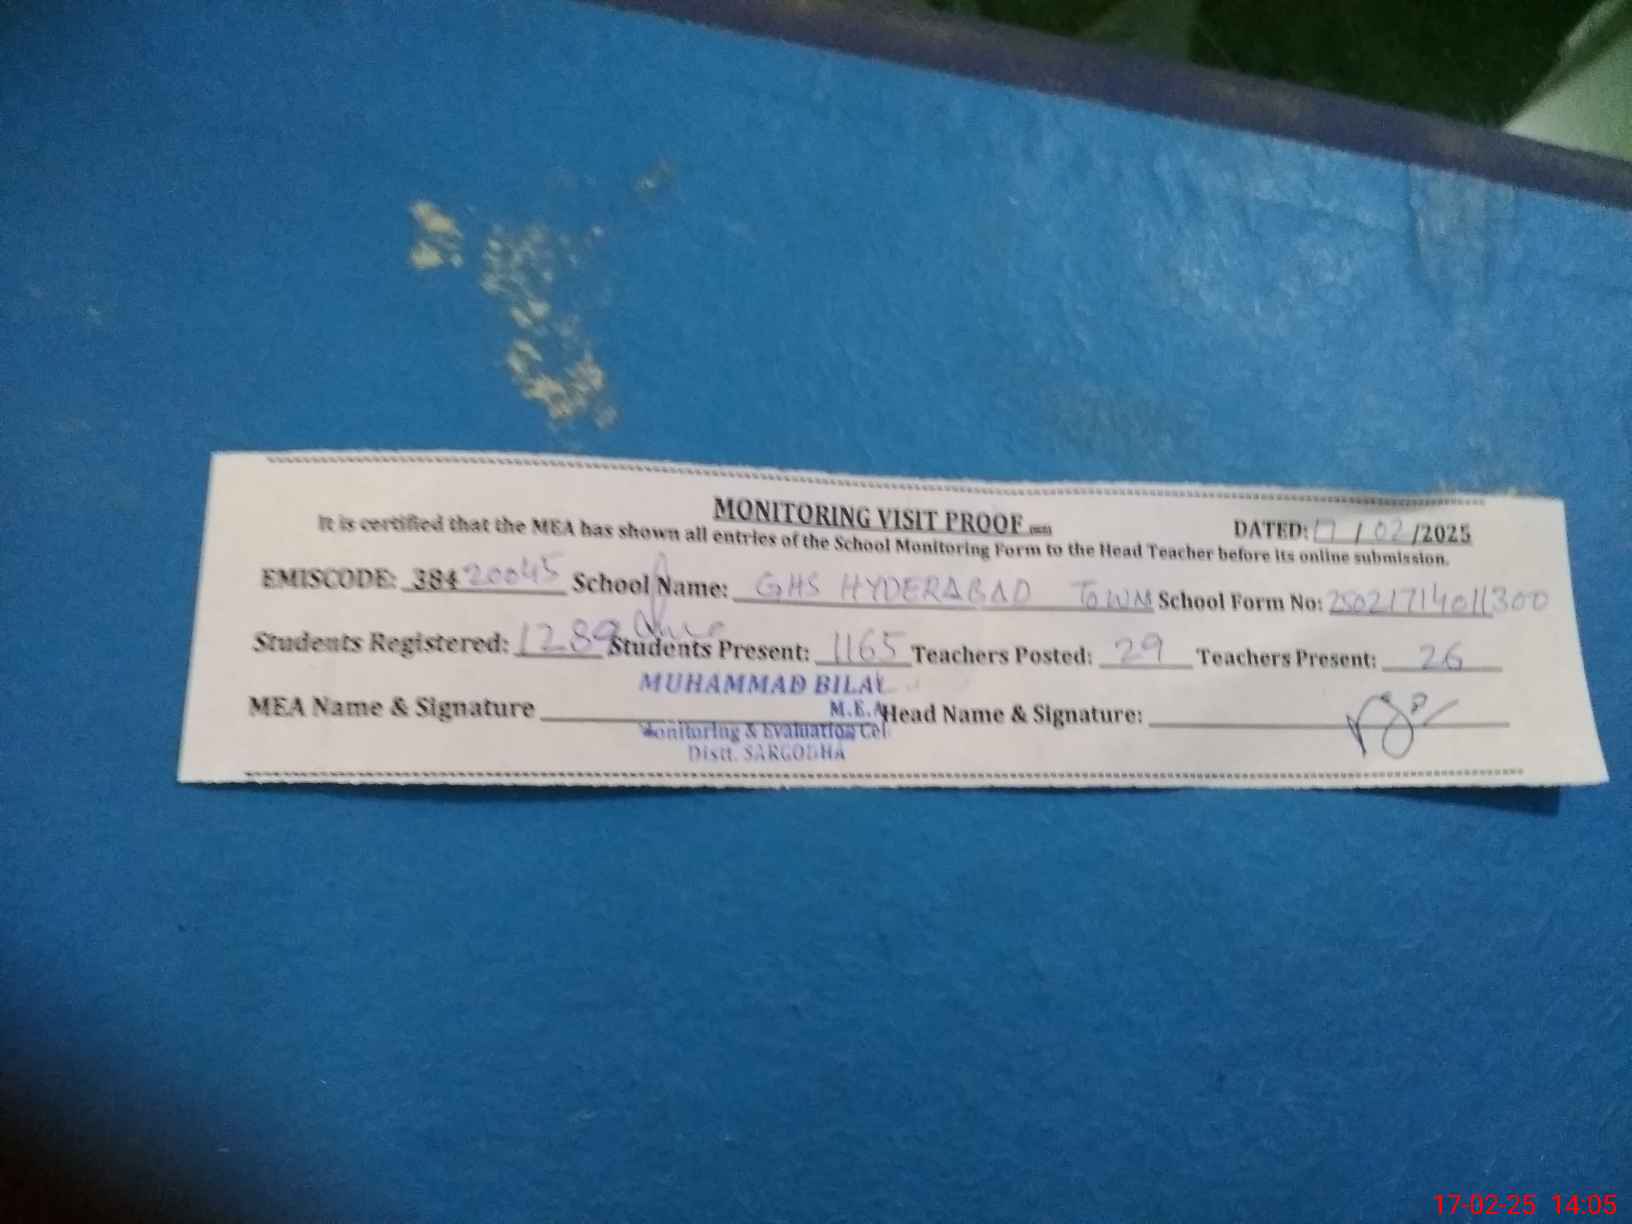 MONITORING VISIT PROOF
DATED: 17/02/2025
It is certified that the MEA has shown all entries of the School Monitoring Form to the Head Teacher before its online submission.
EMISCODE: 38420045 School Name: GHS HYDERABAD TOWN School Form No: 25021714011300
Students Registered: 1289 Students Present: 1165 Teachers Posted: 29 Teachers Present: 26
MUHAMMAD BILAL
MEA Name & Signature M.E.A Head Name & Signature:
Monitoring & Evaluation Cel
Distt. SARGODHA
17-02-25 14:05